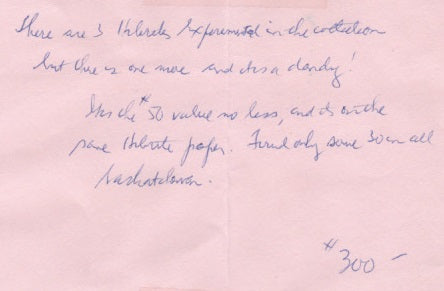 There are 3 Hibrites Experimental in the collection
but there is one more and its a dandy!
Its the $50 value no less, and its on the
same Hibrite paper. Found only some 30 in all
Saskatchewan.
$300 —